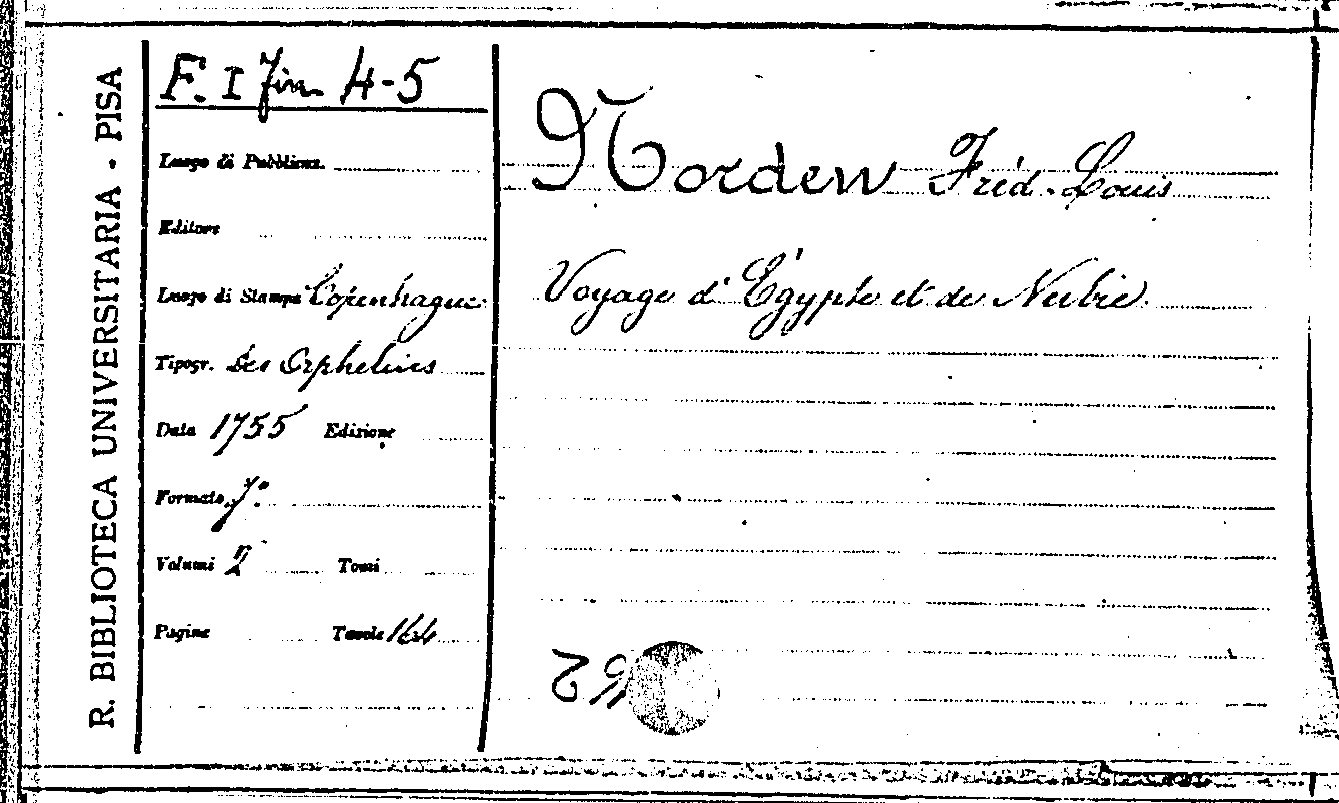 R. BIBLIOTECA UNIVERSITARIA - PISA
F. I fin 4-5
Luogo di Pubblicaz.
Editore
Luogo di Stampa Copenhague
Tipogr. des Orphelins
Data 1755 Edizione
Formato f.°
Volumi 2 Tomi
Pagine Tavole 164
Norden Fréd. Louis
Voyage d'Égypte et de Nubie